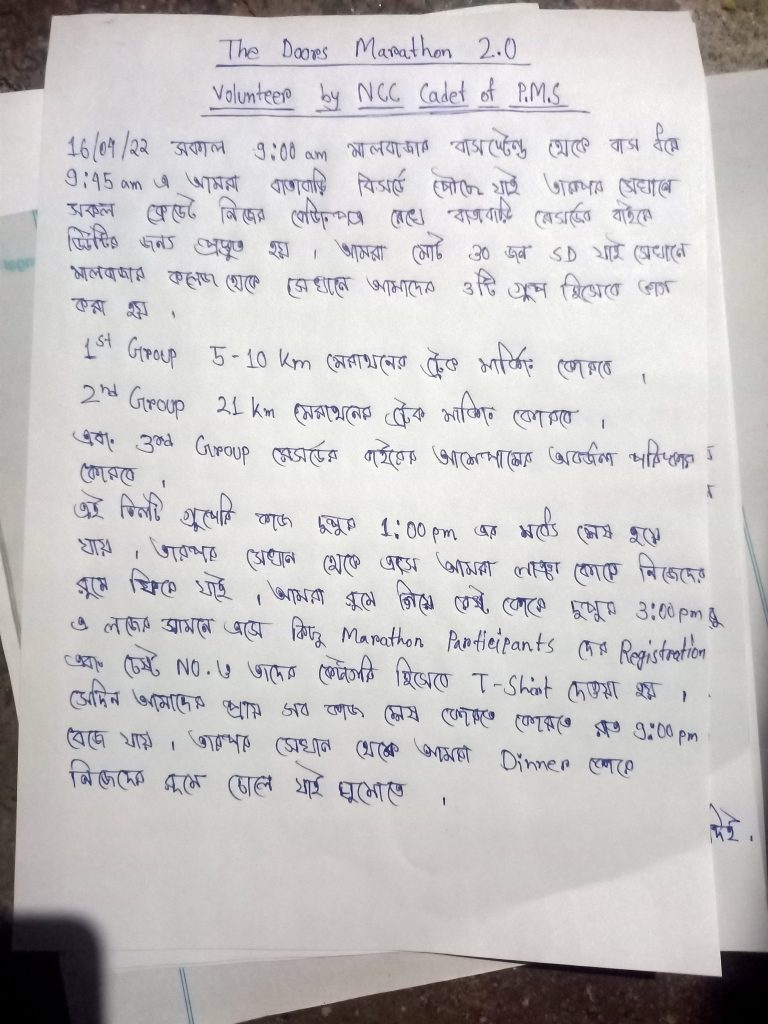 The Dooars Marathon 2.0
Volunteer by NCC Cadet of P.M.S
16/04/22 সকাল 9:00 am মালবাজার বাসস্টেন্ড থেকে বাস ধরে
9:45 am এ আমরা বাতাবাড়ি রিসর্টে পৌছে যাই তারপর সেখানে
সকল কেডেট নিজের রেখে বাতাবাড়ি রেসর্টের বাইরে
ডিউটির জন্য প্রস্তুত হয় । আমরা মোট 30 জন SD যাই সেখানে
মালবাজার কলেজ থেকে সেখানে আমাদের ৩টি গ্রুপ হিসেবে ভাগ
করা হয় ।
1st Group 5-10 Km মেরাথনের ট্রেক মার্কিং কোরবে ।
2nd Group 21 Km মেরাথনের ট্রেক মার্কিং কোরবে ।
এবং 3rd Group রেসর্টের বাইরের আশেপাশের আবর্জনা পরিষ্কার
কোরবে ।
এই তিনটি গ্রুপের কাজ দুপুর 1:00 pm এর মধ্যে শেষ হয়ে
যায় । তারপর সেখান থেকে এসে আমরা লাঞ্চ কোরে নিজেদের
রুমে ফিরে যাই । আমরা রুমে গিয়ে রেস্ট কোরে দুপুর 3:00 pm
এ লজের সামনে এসে কিছু Marathon Participants দের Registration
এবং চেস্ট NO. ও তাদের কেটাগরি হিসেবে T-Shirt দেওয়া হয় ।
সেদিন আমাদের প্রায় সব কাজ শেষ কোরতে কোরতে রাত 9:00 pm
বেজে যায় । তারপর সেখান থেকে আমরা Dinner কোরে
নিজেদের রুমে চোলে যাই ঘুমোতে ।
দেই .